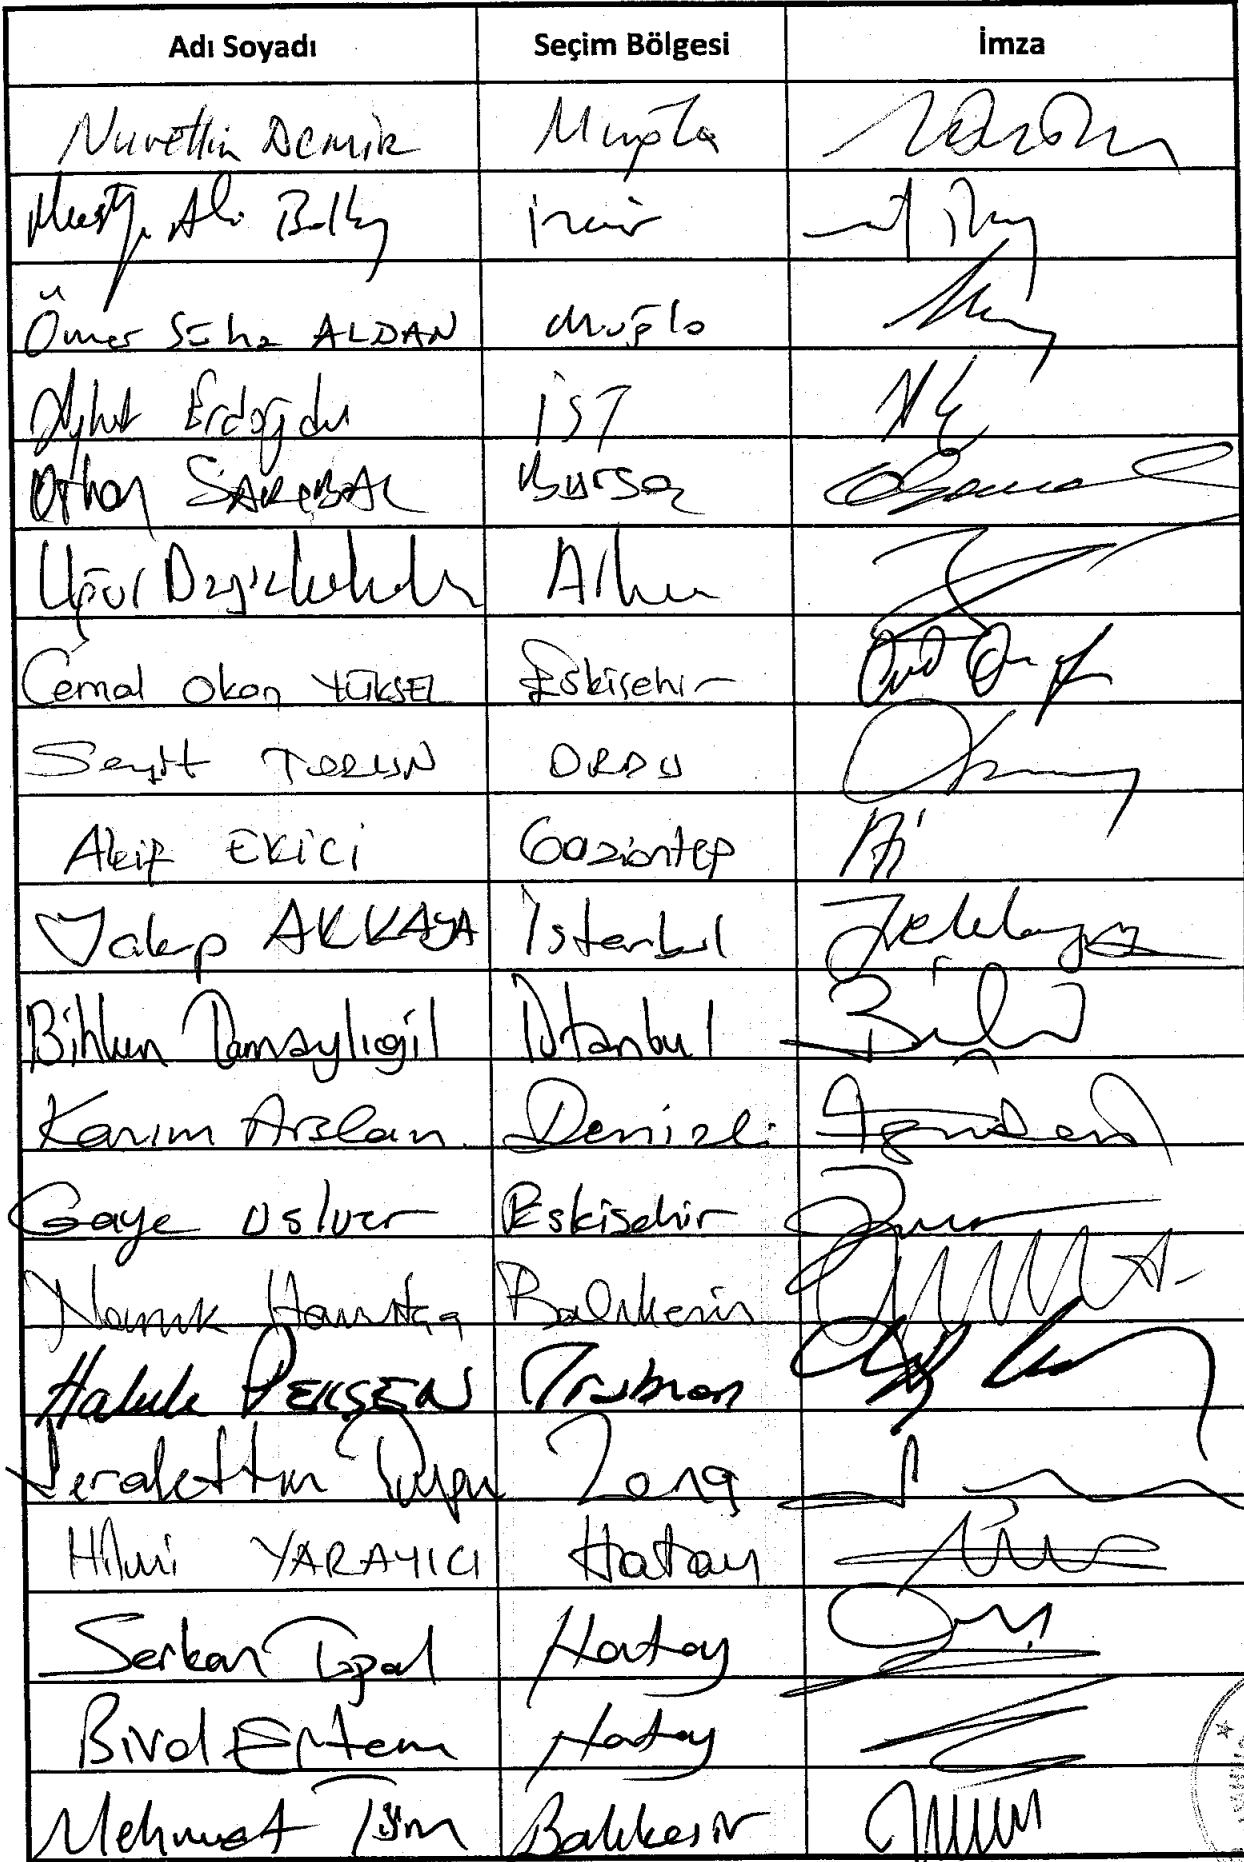 Adı Soyadı Seçim Bölgesi İmza
Nurettin Demir Muğla
Ali İzmir
Ömer Süha ALDAN Muğla
Aykut Erdoğdu İST
Orhan SARIBAL Bursa
Uğur Adana
Cemal Okan YÜKSEL Eskişehir
Seyit TORUN ORDU
Akif EKİCİ Gaziantep
Yakup AKKAYA İstanbul
Bihlun Tamaylıgil İstanbul
Kazım Arslan Denizli
Gaye Usluer Eskişehir
Namık Havutça Balıkesir
Haluk PEKŞEN Trabzon
Şerafettin Turpcu Zong
Hilmi YARAYICI Hatay
Serkan Topal Hatay
Birol Ertem Hatay
Mehmet Tüm Balıkesir